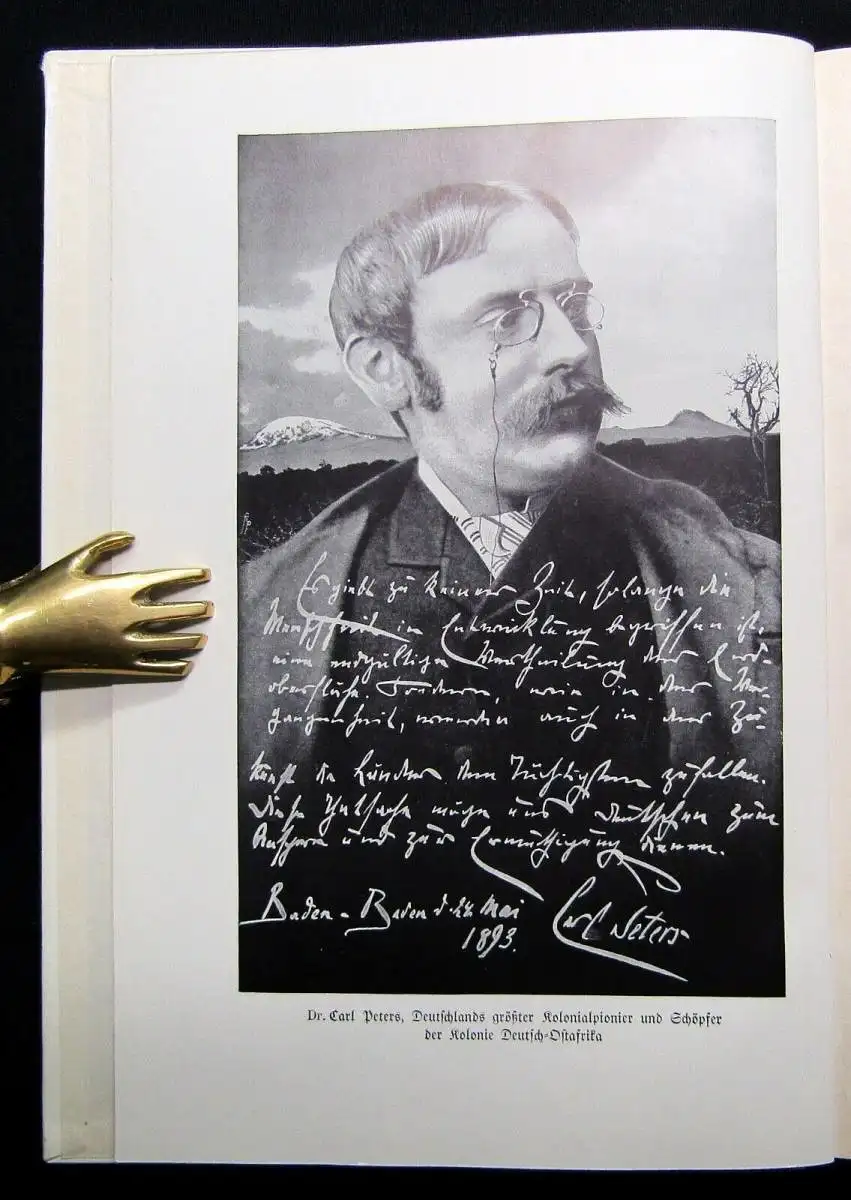 Es giebt zu keiner Zeit, solange die
Menschheit in Entwicklung begriffen ist,
eine endgültige Vertheilung der Erd-
oberfläche. Sondern, wie in der Ver-
gangenheit, werden auch in der Zu-
kunft die Länder dem Tüchtigsten zufallen.
Diese Thatsache möge uns Deutschen zum
Ansporn und zur Ermuthigung dienen.
Baden-Baden d. 24 Mai
1893.
Carl Peters
Dr. Carl Peters, Deutschlands größter Kolonialpionier und Schöpfer
der Kolonie Deutsch-Ostafrika